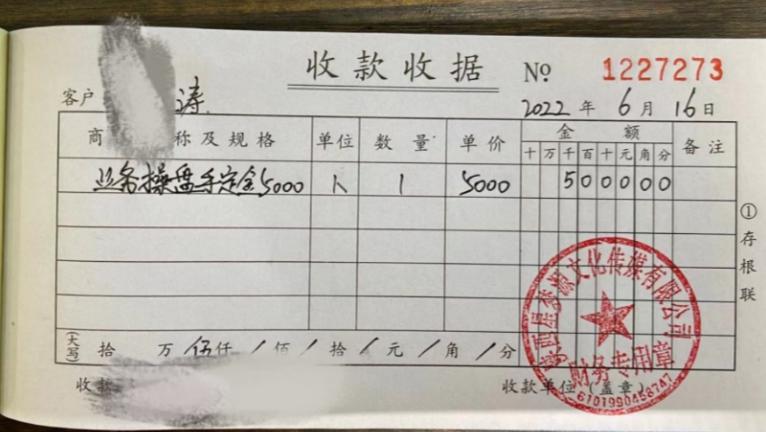 收款收据 № 1227273
客户 涛
2022年6月16日
商 称及规格 单位 数量 单价 金额 备注
十万千百十元角分
业务操盘手定金5000 人 1 5000 5000 00
①存根联
(大写) 拾 万 伍仟 / 佰 / 拾 / 元 / 角 / 分
收款 收款单位(盖章)
陕西星梦源文化传媒有限公司
财务专用章
6101990458747